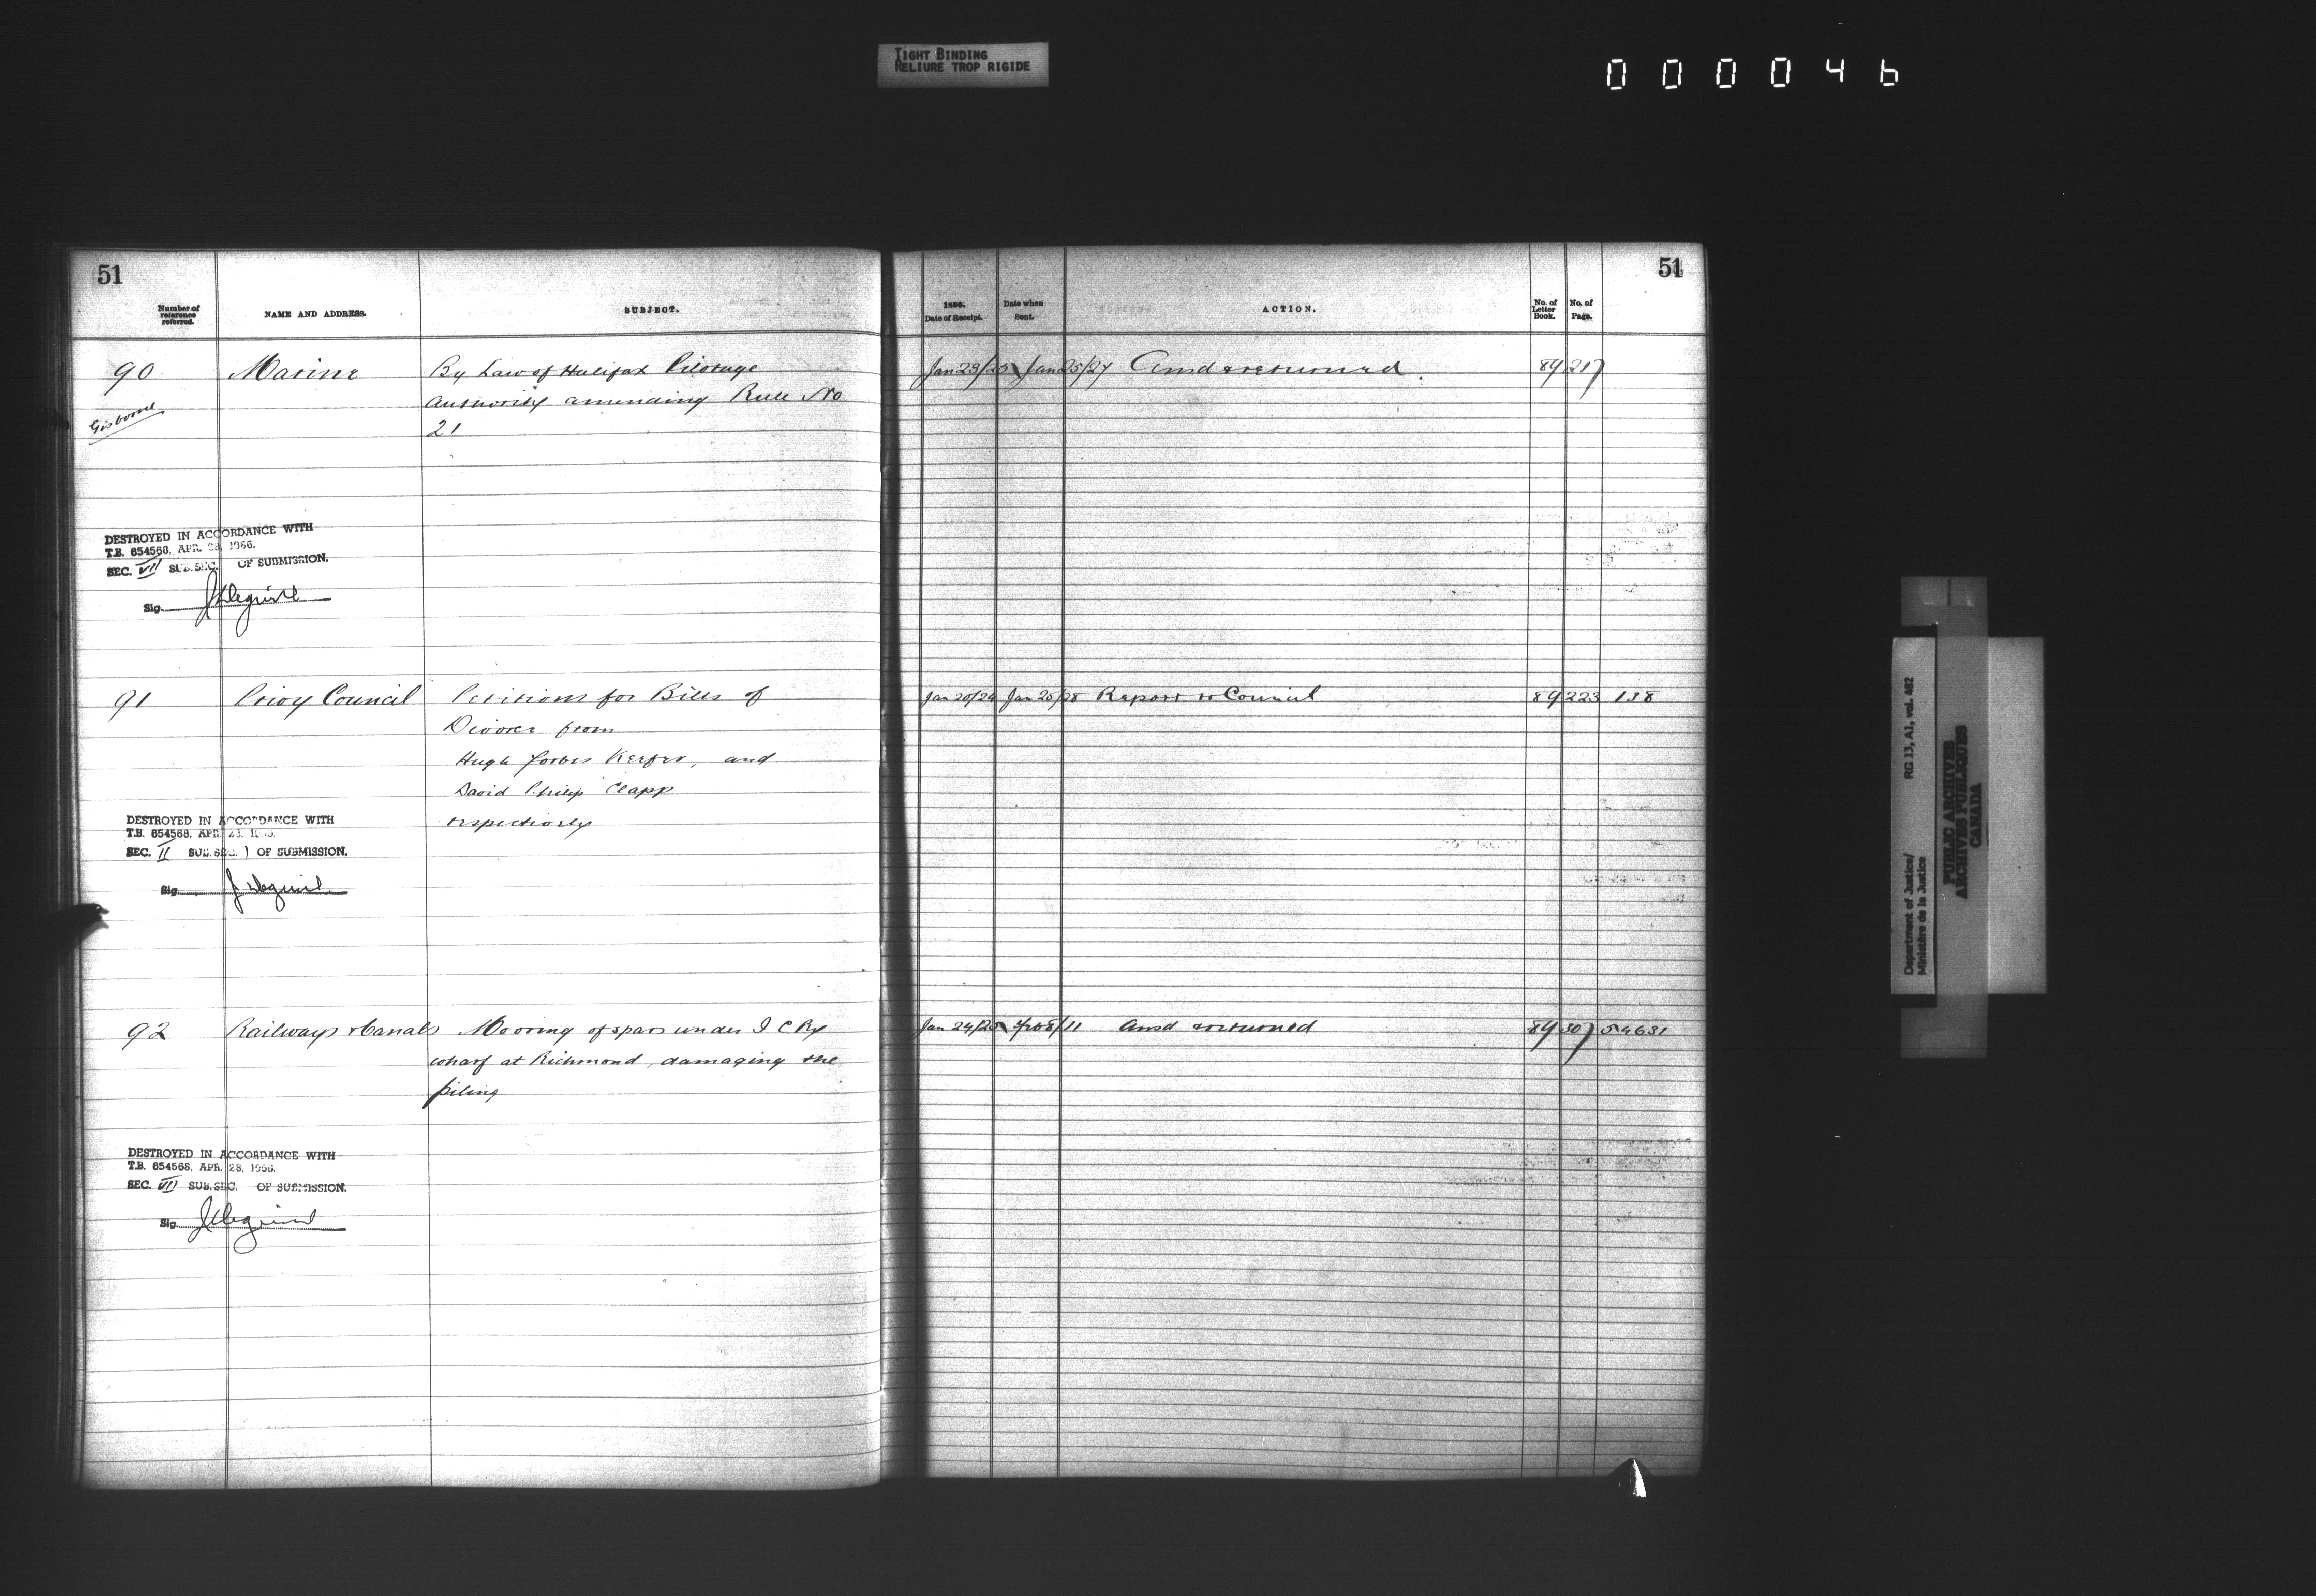 TIGHT BINDING
RELIURE TROP RIGIDE
000046
51
Number of reference referred.
NAME AND ADDRESS.
SUBJECT.
1896.
Date of Receipt.
Date when Sent.
ACTION.
No. of Letter Book.
No. of Page.
51
90 Marine By Law of Halifax Pilotage Jan 23/25 Jan 25/27 Ansd & returned 89 217
Gisborne Authority amending Rule No
21
DESTROYED IN ACCORDANCE WITH
T.B. 654568, APR. 28, 1966.
SEC. VII SUB.SEC. OF SUBMISSION.
Sig.
91 Privy Council Petitions for Bills of Jan 20/24 Jan 25/28 Report to Council 89 223 138
Divorce from
Hugh Forbes Keefer, and
David Philip Clapp
respectively
DESTROYED IN ACCORDANCE WITH
T.B. 654568, APR. 28, 1966.
SEC. II SUB.SEC. 1 OF SUBMISSION.
Sig.
92 Railways & Canals Mooring of spars under I C Ry Jan 24/25 Ansd & returned 89 307 54631
wharf at Richmond, damaging the
piling
DESTROYED IN ACCORDANCE WITH
T.B. 654568, APR. 28, 1966.
SEC. VII SUB.SEC. OF SUBMISSION.
Sig.
Department of Justice/ RG 13, A1, vol. 462
Ministère de la Justice
PUBLIC ARCHIVES
ARCHIVES PUBLIQUES
CANADA